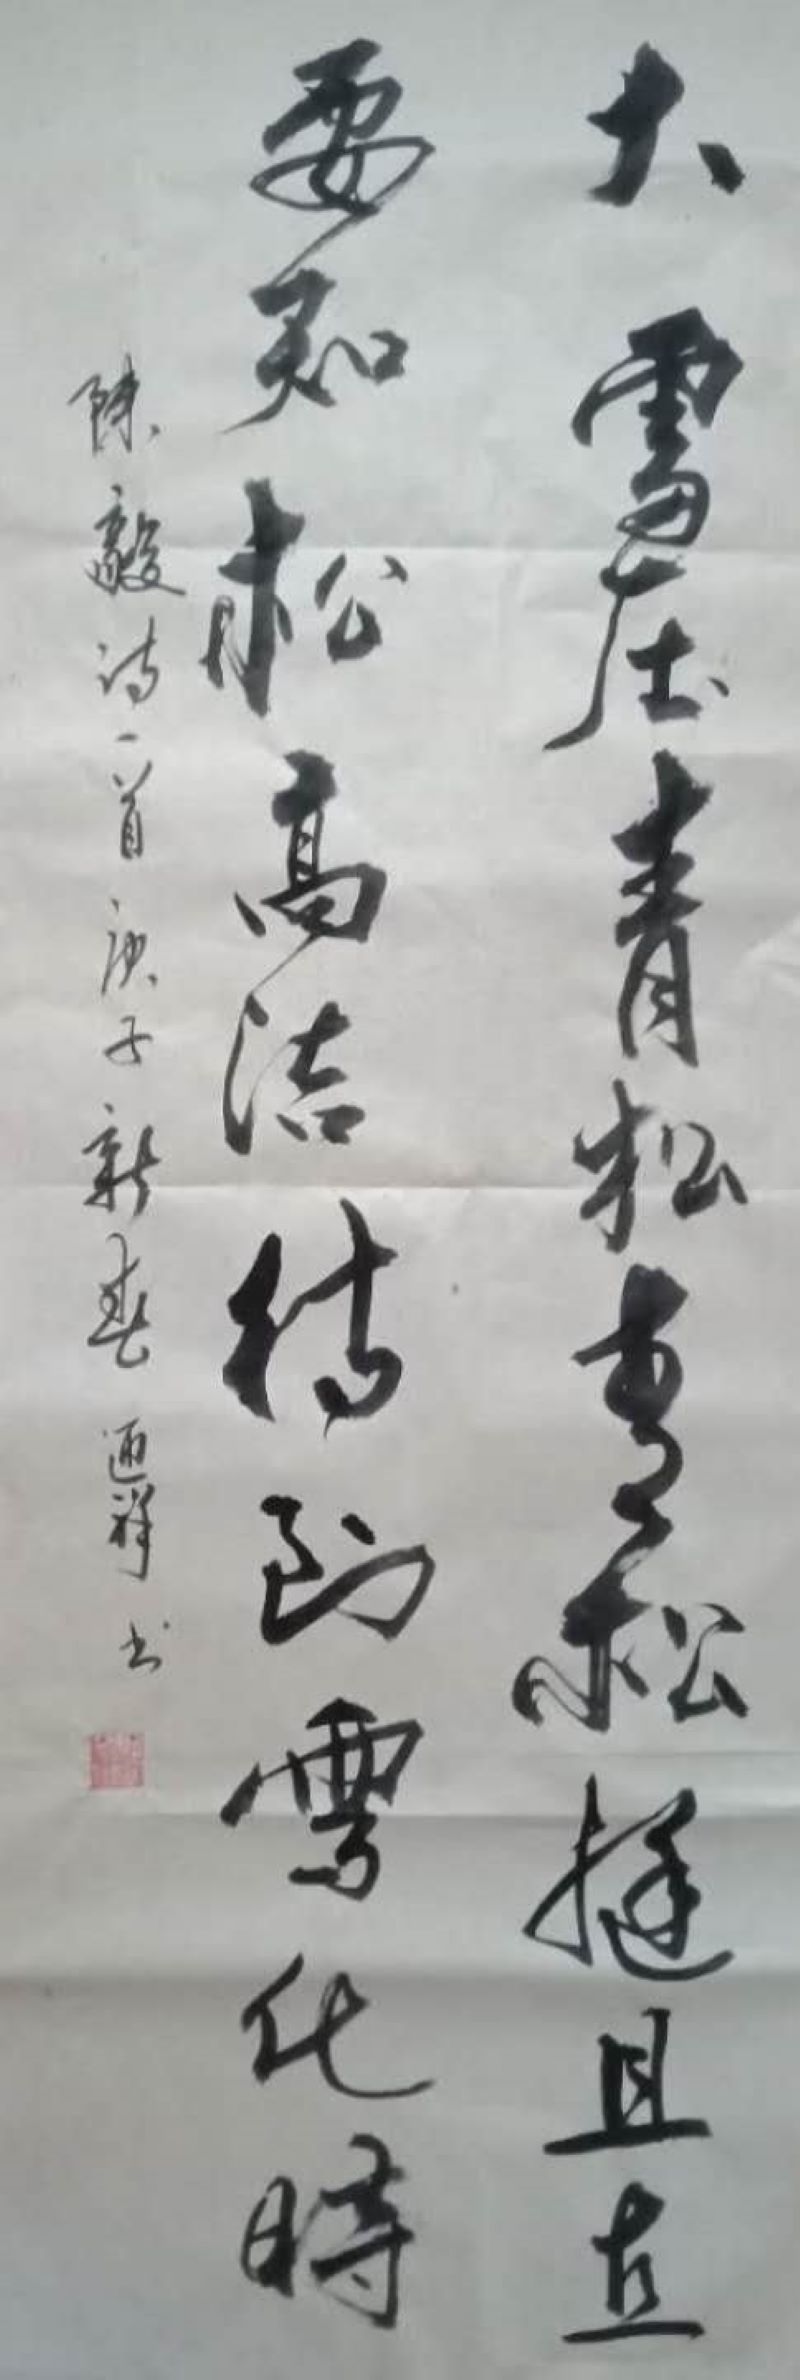 大雪压青松青松挺且直
要知松高洁待到雪化時
陈毅诗一首庚子新春 通祥书